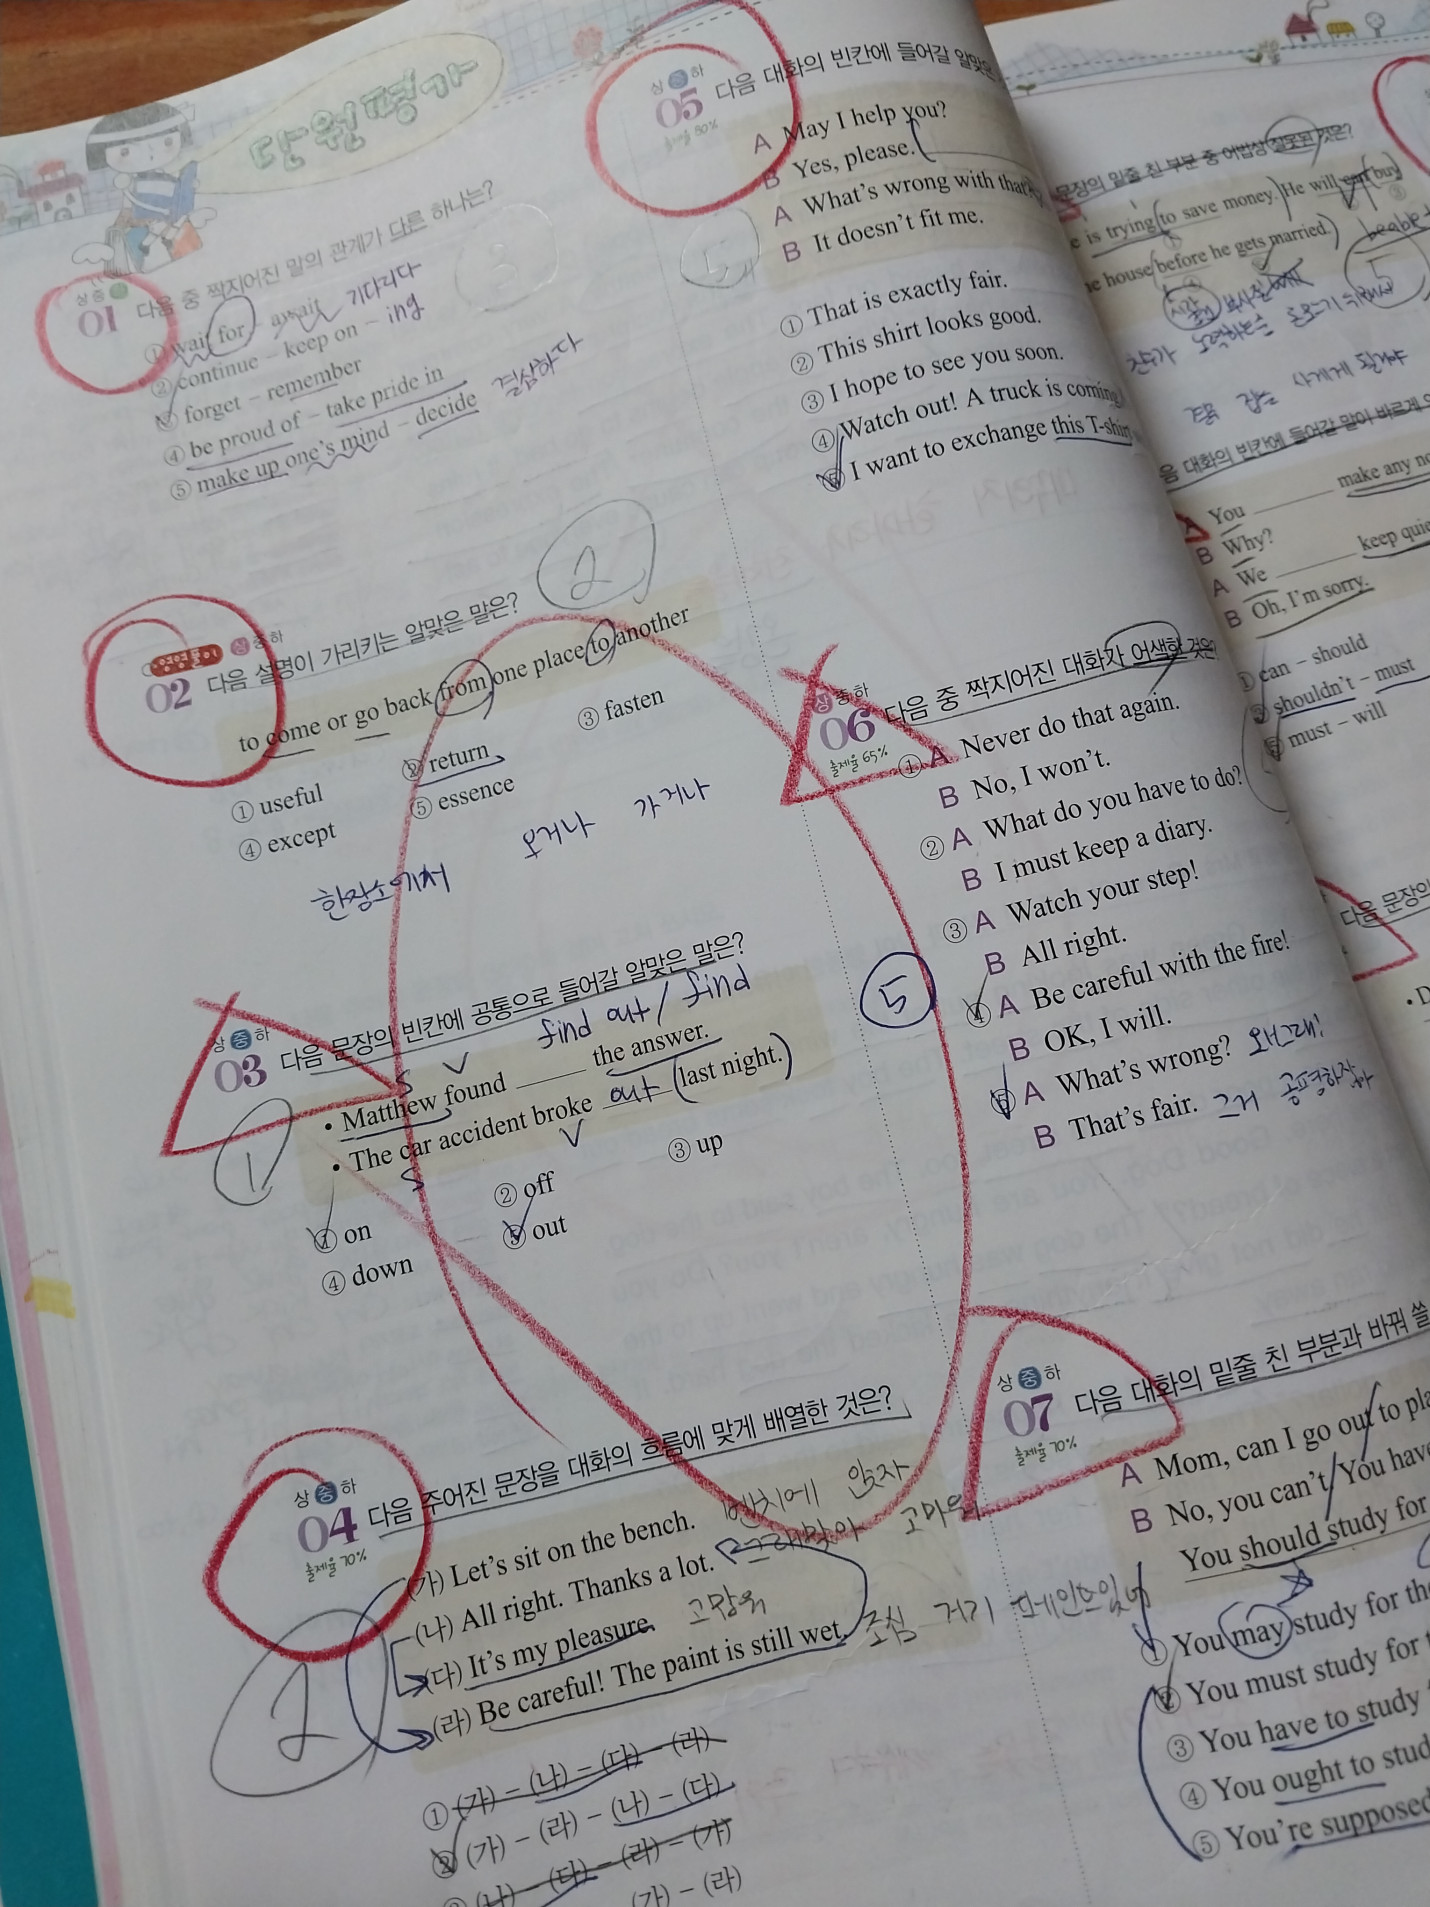 단원평가
상 중 하
01 다음 중 짝지어진 말의 관계가 다른 하나는?
3
① wait for – await 기다리다
② continue – keep on – ing
③ forget – remember
④ be proud of – take pride in
⑤ make up one's mind – decide 결심하다
상 중 하
02 다음 설명이 가리키는 알맞은 말은?
2
to come or go back from one place to another
① useful
② return
③ fasten
④ except
⑤ essence
한장소에서 오거나 가거나
상 중 하
03 다음 문장의 빈칸에 공통으로 들어갈 알맞은 말은?
find out / find
• Matthew found ______ the answer.
• The car accident broke out (last night.)
S V
S V
1
① on
② off
③ up
④ down
⑤ out
상 중 하
04 다음 주어진 문장을 대화의 흐름에 맞게 배열한 것은?
출제율 70%
(가) Let's sit on the bench. 벤치에 앉자
(나) All right. Thanks a lot. 고마워
(다) It's my pleasure.
(라) Be careful! The paint is still wet. 조심 저기
2
① (가) – (나) – (다) – (라)
② (가) – (라) – (나) – (다)
(나) – (다) – (라) – (가)
(가) – (라)
상 중 하
05 다음 대화의 빈칸에 들어갈 알맞은
출제율 80%
A May I help you?
B Yes, please.
A What's wrong with that
B It doesn't fit me.
5
① That is exactly fair.
② This shirt looks good.
③ I hope to see you soon.
④ Watch out! A truck is coming
⑤ I want to exchange this T-shirt
상 중 하
06 다음 중 짝지어진 대화가 어색한 것은?
출제율 65%
① A Never do that again.
B No, I won't.
② A What do you have to do?
B I must keep a diary.
③ A Watch your step!
B All right.
④ A Be careful with the fire!
B OK, I will.
5
⑤ A What's wrong? 왜그래!
B That's fair. 그거 공평하잖아
상 중 하
07 다음 대화의 밑줄 친 부분과 바꿔 쓸
출제율 70%
A Mom, can I go out to
B No, you can't. You have
You should study for
① You may study for
② You must study for
③ You have to study
④ You ought to
⑤ You're supposed
문장의 밑줄 친 부분 중 어법상 잘못된 것은?
is trying to save money. He will can buy
house before he gets married.
5
대화의 빈칸에 들어갈 말이 바르게
A You ______ make any
B Why?
A We ______ keep
B Oh, I'm sorry.
① can – should
② shouldn't – must
must – will
다음 문장의